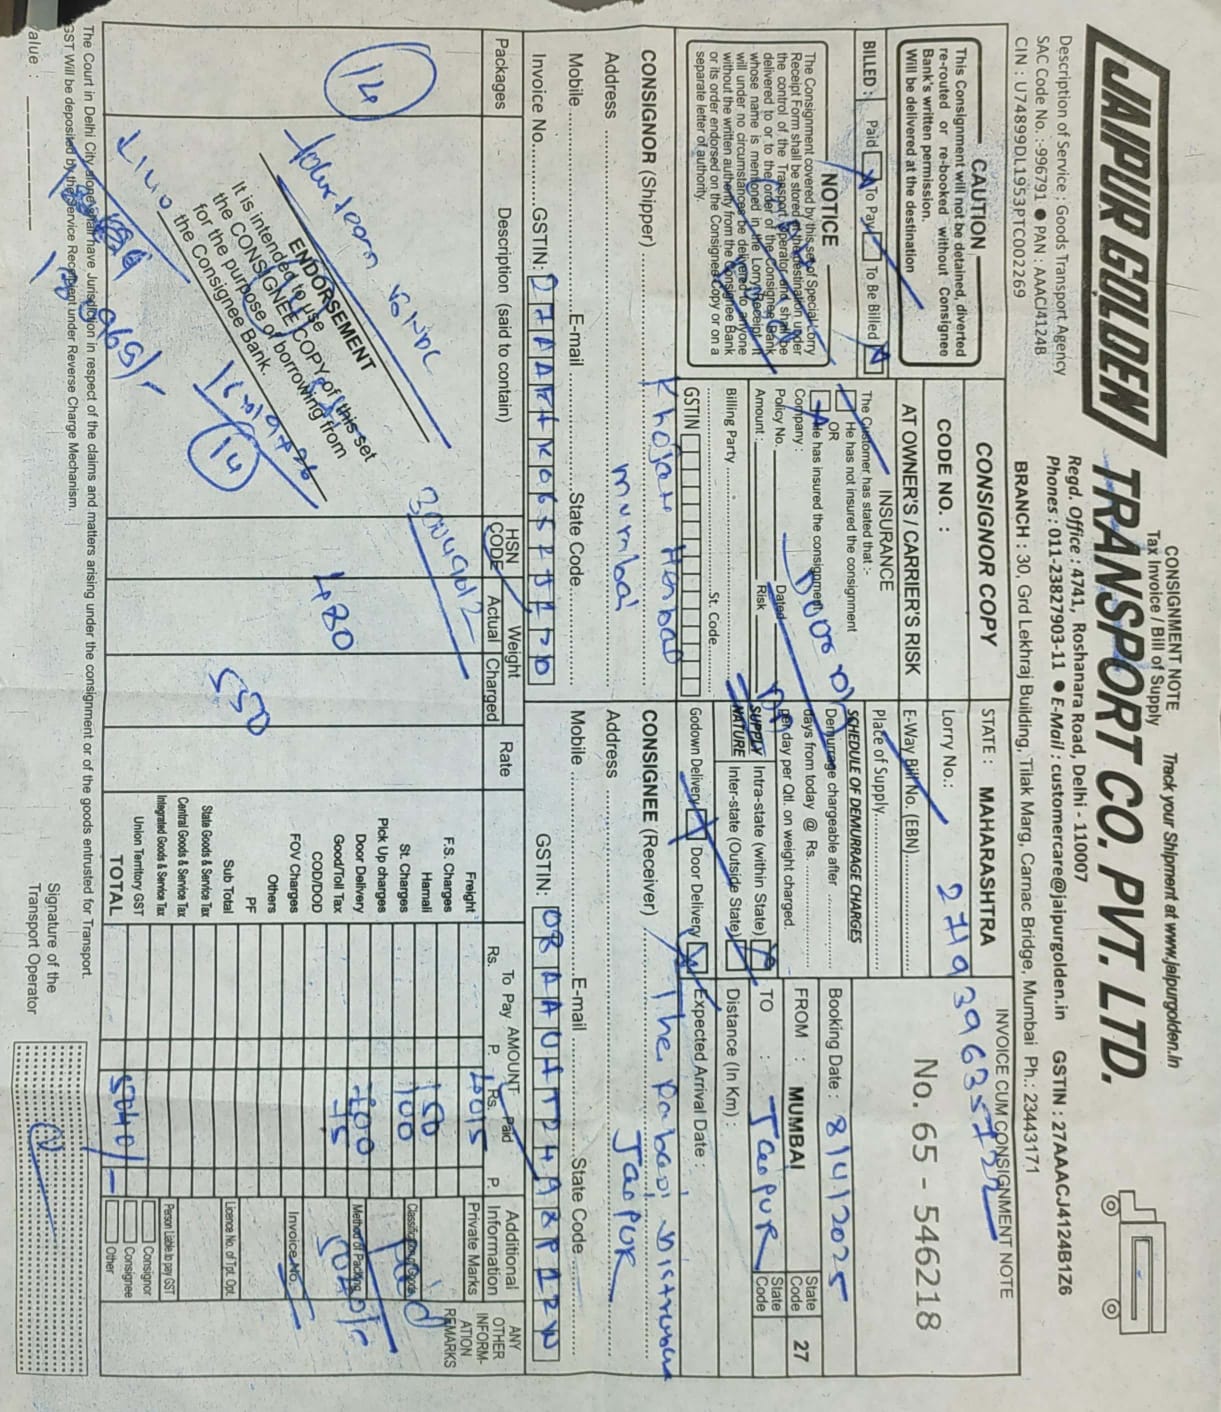 CONSIGNMENT NOTE
Tax Invoice / Bill of Supply
Track your Shipment at www.jaipurgolden.in
JAIPUR GOLDEN TRANSPORT CO. PVT. LTD.
Regd. Office : 4741, Roshanara Road, Delhi - 110007
Description of Service : Goods Transport Agency
Phones : 011-23827903-11 ● E-Mail : customercare@jaipurgolden.in GSTIN : 27AAACJ4124B1Z6
SAC Code No. :-996791 ● PAN : AAACJ4124B
CIN : U74899DL1953PTC002269
BRANCH : 30, Grd Lekhraj Building, Tilak Marg, Carnac Bridge, Mumbai Ph.: 23443171
CAUTION
This Consignment will not be detained, diverted
re-routed or re-booked without Consignee
Bank's written permission.
Will be delivered at the destination
BILLED : Paid To Pay To Be Billed
NOTICE
The Consignment covered by this set of Special Lorry
Receipt Form shall be stored at the destination under
the control of the Transport Operator and shall be
delivered to or to the order of the Consignee Bank
whose name is mentioned in the Lorry Receipt. It
will under no circumstances be delivered to anyone
without the written authority from the Consignee Bank
or its order endorsed on the Consignee Copy or on a
separate letter of authority.
CONSIGNOR COPY
CODE NO. :
AT OWNER'S / CARRIER'S RISK
INSURANCE
The Customer has stated that :-
He has not insured the consignment
OR
He has insured the consignment
Company :
Policy No. Dated
Amount : Risk
Billing Party
St. Code
GSTIN
STATE : MAHARASHTRA
Lorry No.: 2719 39635722
E-Way Bill No. (EBN)
Place of Supply
SCHEDULE OF DEMURRAGE CHARGES
Demurrage chargeable after
days from today @ Rs.
per day per Qtl. on weight charged.
SUPPLY NATURE
Intra-state (within State)
Inter-state (Outside State)
Godown Delivery Door Delivery
INVOICE CUM CONSIGNMENT NOTE
No. 65 - 546218
Booking Date : 8/4/2025
FROM : MUMBAI State Code 27
TO : JaipUR State Code
Distance (In Km) :
Expected Arrival Date :
CONSIGNOR (Shipper)
Address mumbai
Mobile E-mail State Code
Invoice No. GSTIN:
CONSIGNEE (Receiver)
Address JaipUR
Mobile E-mail State Code
GSTIN:
Packages
Description (said to contain)
HSN CODE
Weight
Actual Charged
Rate
AMOUNT
To Pay Paid
Rs. P. Rs. P.
Additional Information
ANY OTHER INFORM-ATION REMARKS
14
fourteen
30049012
480
550
ENDORSEMENT
It is intended to use
the CONSIGNEE COPY of this set
for the purpose of borrowing from
the Consignee Bank.
14
Freight
F.S. Charges
Hamali 150
St. Charges 100
Pick Up charges
Door Delivery
Good/Toll Tax 75
COD/DOD
FOV Charges
Others
PF
Sub Total
State Goods & Service Tax
Central Goods & Service Tax
Integrated Goods & Service Tax
Union Territory GST
TOTAL 5040/-
Private Marks
Classification of Goods
Paid
Method of Packing
5040/-
Invoice No.
Licence No. of Tpt. Opt.
Person Liable to pay GST
Consignor
Consignee
Other
The Court in Delhi City alone shall have Jurisdiction in respect of the claims and matters arising under the consignment or of the goods entrusted for Transport.
GST Will be deposited by the Service Recipient under Reverse Charge Mechanism.
Value :
Signature of the
Transport Operator